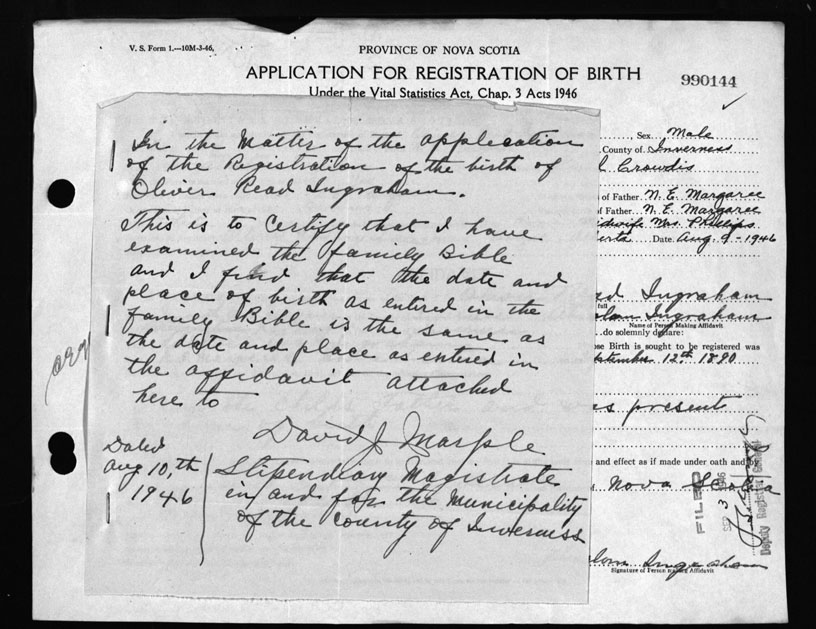 V. S. Form 1.—10M-3-46.
PROVINCE OF NOVA SCOTIA
APPLICATION FOR REGISTRATION OF BIRTH
990144
Under the Vital Statistics Act, Chap. 3 Acts 1946
In the Matter of the application
of the Registration of the birth of
Oliver Read Ingraham.
This is to Certify that I have
examined the family Bible
and I find that the date and
place of birth as entered in the
family Bible is the same as
the date and place as entered in
the affidavit attached
here to
David J Marple
Stipendiary Magistrate
in and for the Municipality
of the County of Inverness
Dated
Aug 10, th
1946
Sex Male
County of Inverness
Crowdis
of Father N. E. Margaree
of Father N. E. Margaree
Midwife Mrs Phillips
Date Aug. 9 - 1946
Ingraham
full
Ingraham
Name of Person Making Affidavit
do solemnly declare:
ose Birth is sought to be registered was
12th 1890
as present
and effect as if made under oath and by
Nova Scotia
FILED
SEP 3 1946
Deputy Registrar
Ingraham
Signature of Person making Affidavit